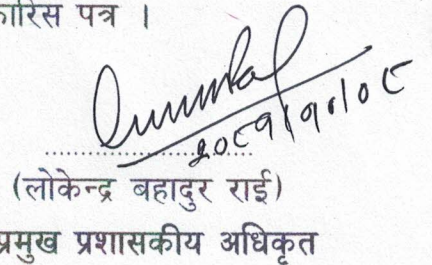 कारिस पत्र ।
२०८१।१०।०८
(लोकेन्द्र बहादुर राई)
प्रमुख प्रशासकीय अधिकृत